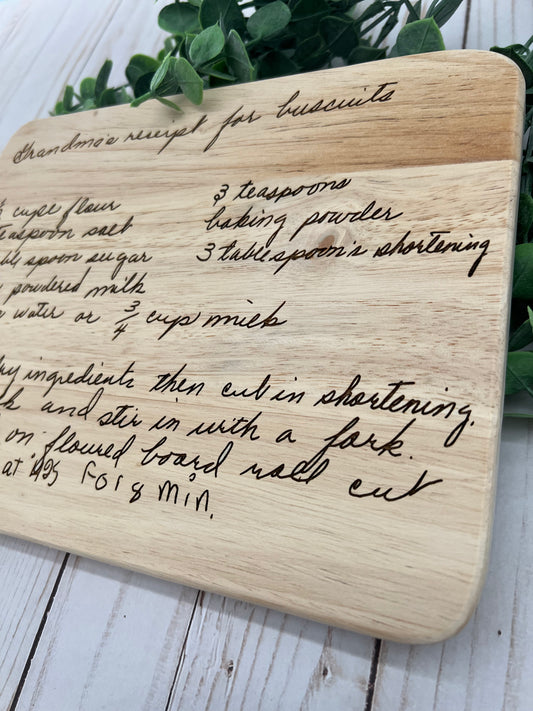 Grandma's receipt for buscuits
cups flour
teaspoon salt
spoon sugar
powdered milk
water or 3/4 cup milk
3 teaspoons
baking powder
3 tablespoon's shortening
ingredients then cut in shortening.
and stir in with a fork.
on floured board roll cut
at 425 For 8 min.